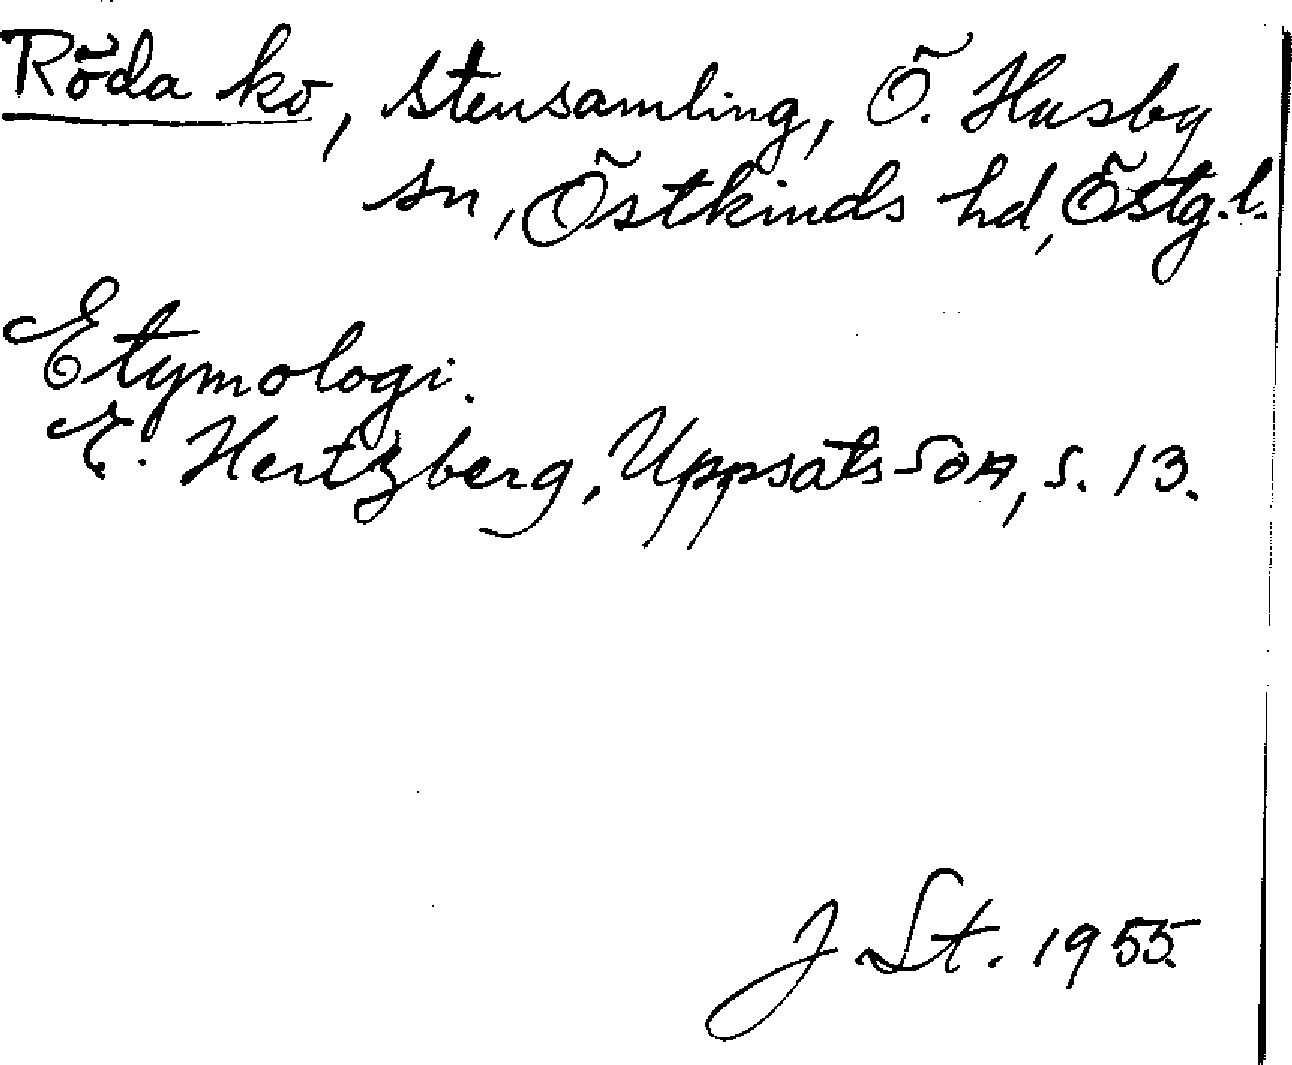 Röda ko, stensamling, Ö. Husby
sn, Östkinds hd, Östg.l.
Etymologi.
E. Hertzberg, Uppsats SOA, s. 13.
J St. 1955